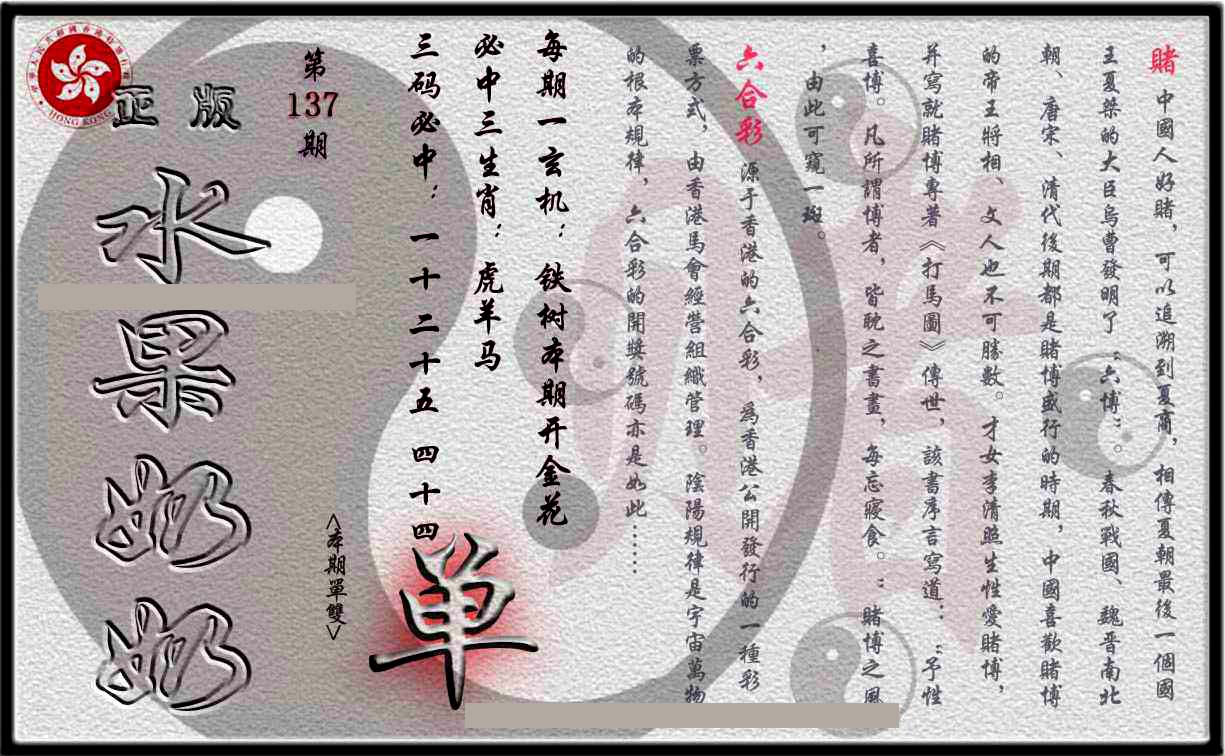 賭 中國人好賭，可以追溯到夏商，相傳夏朝最後一個國
王夏桀的大臣烏曹發明了“六博”。春秋戰國、魏晋南北
朝、唐宋、清代後期都是賭博盛行的時期，中國喜歡賭博
的帝王將相、文人也不可勝數。才女李清照生性愛賭博，
并寫就賭博專著《打馬圖》傳世，該書序言寫道：“予性
喜博。凡所謂博者，皆耽之書畫，每忘寢食。”賭博之風
，由此可窺一斑。
六合彩 源于香港的六合彩，為香港公開發行的一種彩
票方式，由香港馬會經營組織管理。陰陽規律是宇宙萬物
的根本規律，六合彩的開獎號碼亦是如此……
每期一玄机：铁树本期开金花
必中三生肖：虎羊马
三码必中：一十二十五 四十四
第137期
<本期單雙>
单
正版
水果奶奶
HONG KONG